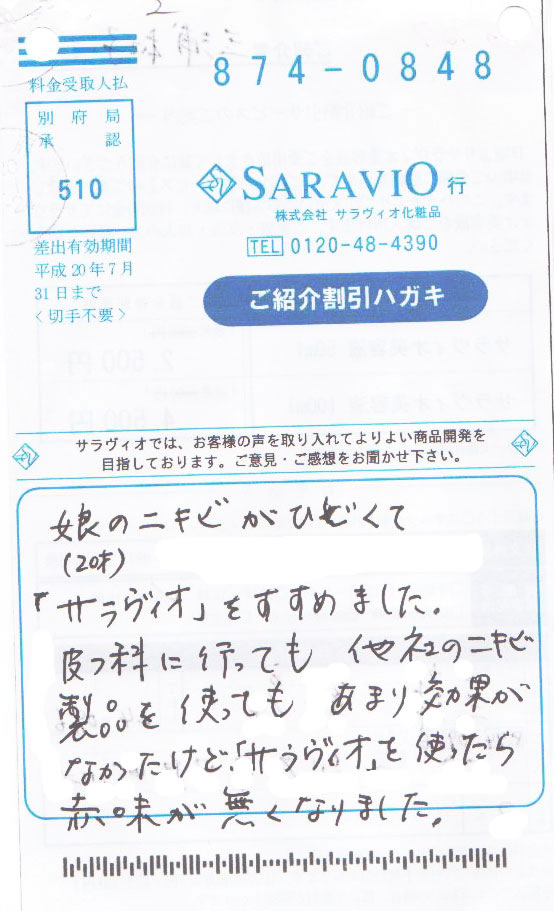 874-0848
料金受取人払
別府局
承認
510
差出有効期間
平成20年7月
31日まで
<切手不要>
SARAVIO 行
株式会社 サラヴィオ化粧品
TEL 0120-48-4390
ご紹介割引ハガキ
サラヴィオでは、お客様の声を取り入れてよりよい商品開発を
目指しております。ご意見・ご感想をお聞かせ下さい。
娘のニキビがひどくて
(20才)
「サラヴィオ」をすすめました。
皮フ科に行っても 他社のニキビ
製品を使っても あまり効果が
なかったけど、「サラヴィオ」を使ったら
赤味が無くなりました。